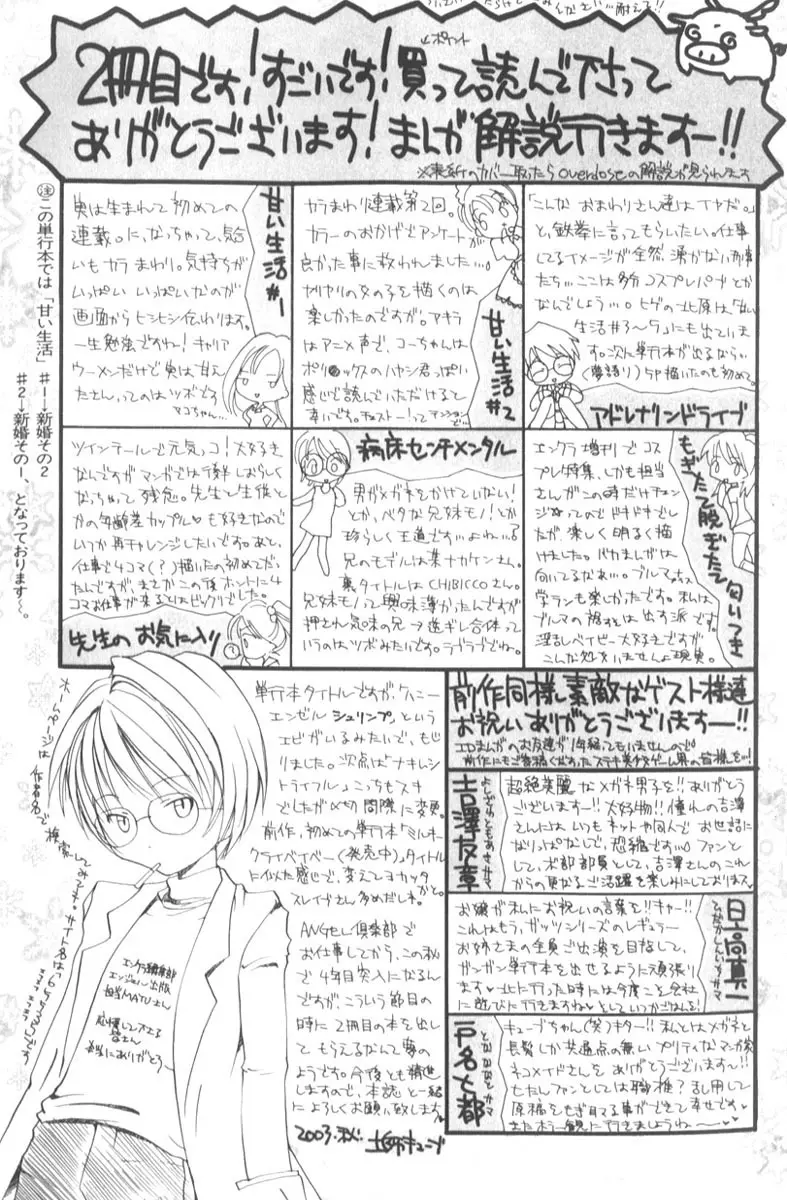 2冊目です!すごいです!買って読んで下さって
ありがとうございます!まんが解説行きますー!!
←ポイント
※表紙のカバー取ったらoverdoseの解説が見られます
㊟この単行本では「甘い生活」#1→新婚その2
#2→新婚その1、となっております〜。
「こんなおまわりさん達はイヤだ。」
と、鉄拳に言ってもらいたい。仕事
してるイメージが全然湧かない刑事
たち…ここは多分コスプレパブとか
なんでしょう…。ヒゲの北原は「甘い
生活#3〜5」にも出ていま
す。次ん単行本が出るなら…
(夢語り)SP描いたのも初めて。
アドレナリンドライブ
カラまわり連載第2回。
カラーのおかげでアンケート
が良かった事に救われました…。
ヤリヤリの女の子を描くのは
楽しかったのですが。アキラ
はアニメ声で、コーちゃんは
感じで読んでいただけると
幸いです。
甘い生活#2
実は生まれて初めての
連載。に、なっちゃって、気合
いもカラまわり。気持ちが
いっぱいいっぱいなのが
画面からヒシヒシ伝わります。
一生勉強ですね!キャリア
ウーメンだけで実は甘えん
たさんってのはツボです
マコちゃん…
甘い生活#1
エンクラ増刊でコス
プレ特集、しかも担当
さんがこの時だけチェン
ジってのでドキドキでし
たが、楽しく明るく描
けました。バカまんがは
向いてるなあ…。ブルマよ
学ランも楽しかったです。私は
ブルマの裾は出す派です。
淫乱ベイビー大好きですが
こんな処女いませんよ現実。
もぎたて脱ぎたて匂いつき
病床センチメンタル
男がメガネをかけていない!
とか、ベタな兄妹モノ!とか
珍らしく王道です…よね…?
兄のモデルは某ナカケンさん。
裏タイトルはCHIBICCOさん。
兄妹モノって興味薄かったんですが
押され気味の兄→逆ギレ合体って
いうのはツボみたいです。ラブラブでね。
ツインテールで元気っコ!大好き
なんですがマンガでは
なっちゃって残念。先生と生徒と
かの年齢差カップル♥も好きなので
いつか再チャレンジしたいです。あと、
仕事で4コマ(?)描いたの初めてだっ
たんですが、まさかこの後ホントに4
コマお仕事が来るとはビックリでした。
先生のお気に入り
前作同様し素敵なゲスト様達
お祝いありがとうございますー!!
吉澤友章
よしざわともあきサマ
超絶美麗なメガネ男子を!!ありがとう
ございますー!!大好物!!憧れの吉澤
さんにはいつもネットや同人でお世話に
なりっぱなしで、恐縮です…。ファンと
して、本部部員として、吉澤さんのこれ
からの更なるご活躍を楽しみにしておりまス。
日高真一
お嬢が私にお祝いの言葉を!!キャー!!
これはもう、ガッツシリーズのレギュラー
お姉さまの全員ご出演を目指して、
ガンガン単行本を出せるように頑張り
ます♥北に行った時には今度こそ会社
に遊びに行きますね♥
戸名七都
となななとサマ
キューブちゃん(笑)キター!!私とはメガネと
長髪しか共通点の無いプリティなマンガ家
ネコメイドさんをありがとうございま〜す!!
もたしファンとしては職権?乱用して
原稿をもぎ取る事ができて幸せです♥
またホラー観に行きましょうね〜♥
単行本タイトルですが、ケハニー
エンゼルシュリンプ、という
エビがいるみたいで、もじ
りました。次点は「ナキレシ
トライフル」こっちもスキ
でしたが〆切間際に変更。
前作、初めての単行本「ミルキー
クライベイベー(発売中)」タイトル
に似た感じで、変えてヨカッタ
かと。
ANGEL倶楽部で
お仕事してから、この秋
で4年目突入になるん
ですが、こういう節目の
時に2冊目の本を出し
てもらえるなんて夢の
ようです。今後とも精進
しますので、本誌と一緒
によろしくお願い致します。
2003.秋
エンジェル出版
担当MAYUさん
応援して下さる
皆さん
本当にありがとう
ホームページは作者名で検索してみて下さい。